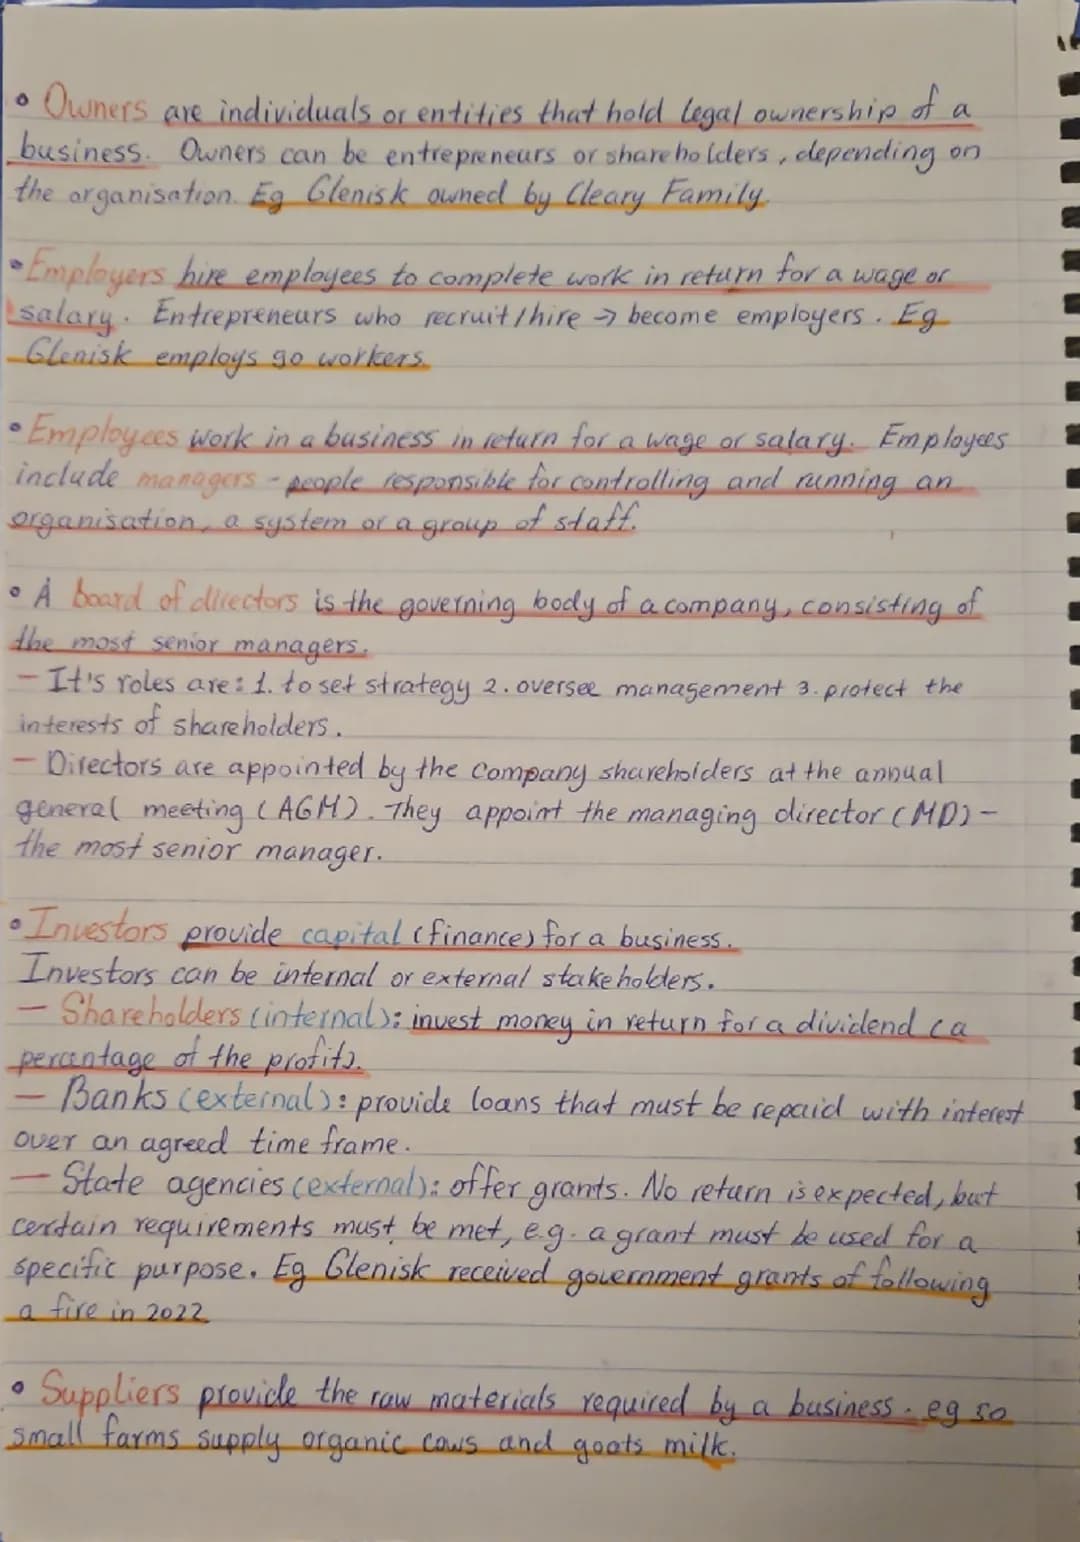 • Owners are individuals or entities that hold legal ownership of a
business. Owners can be entrepreneurs or shareholders, depending on
the organisation. Eg Glenisk owned by Cleary Family.
• Employers hire employees to complete work in return for a wage or
salary. Entrepreneurs who recruit/hire → become employers. Eg
Glenisk employs 90 workers.
• Employees work in a business in return for a wage or salary. Employees
include managers - people responsible for controlling and running an
organisation, a system or a group of staff.
• A board of directors is the governing body of a company, consisting of
the most senior managers.
- It's roles are: 1. to set strategy 2. oversee management 3. protect the
interests of shareholders.
- Directors are appointed by the company shareholders at the annual
general meeting (AGM). They appoint the managing director (MD) -
the most senior manager.
• Investors provide capital (finance) for a business.
Investors can be internal or external stakeholders.
- Shareholders (internal): invest money in return for a dividend (a
percentage of the profit).
- Banks (external): provide loans that must be repaid with interest
over an agreed time frame.
- State agencies (external): offer grants. No return is expected, but
certain requirements must be met, e.g. a grant must be used for a
specific purpose. Eg Glenisk received government grants of following
a fire in 2022
• Suppliers provide the raw materials required by a business. eg 50
small farms supply organic cows and goats milk.